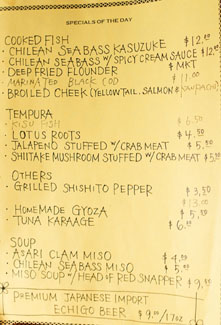 SPECIALS OF THE DAY
COOKED FISH
· CHILEAN SEABASS KASUZUKE $12.50
· CHILEAN SEABASS W/ SPICY CREAM SAUCE $12.50
· DEEP FRIED FLOUNDER $ MKT
MARINATED BLACK COD $ 11.00
· BROILED CHEEK (YELLOWTAIL, SALMON &
TEMPURA
· KISU FISH $ 6.50
· LOTUS ROOTS $ 4.50
· JALAPEÑO STUFFED W/ CRAB MEAT $ 5.
· SHIITAKE MUSHROOM STUFFED W/ CRAB MEAT $ 5.
OTHERS
· GRILLED SHISHITO PEPPER $ 3.50
$ 13.00
· HOMEMADE GYOZA $ 5.
· TUNA KARAAGE $ 6.
SOUP
· ASARI CLAM MISO $ 4.
· CHILEAN SEABASS MISO $ 5.
· MISO SOUP W/ HEAD OF RED SNAPPER $ 9.
PREMIUM JAPANESE IMPORT
ECHIGO BEER $ 9.00/17oz